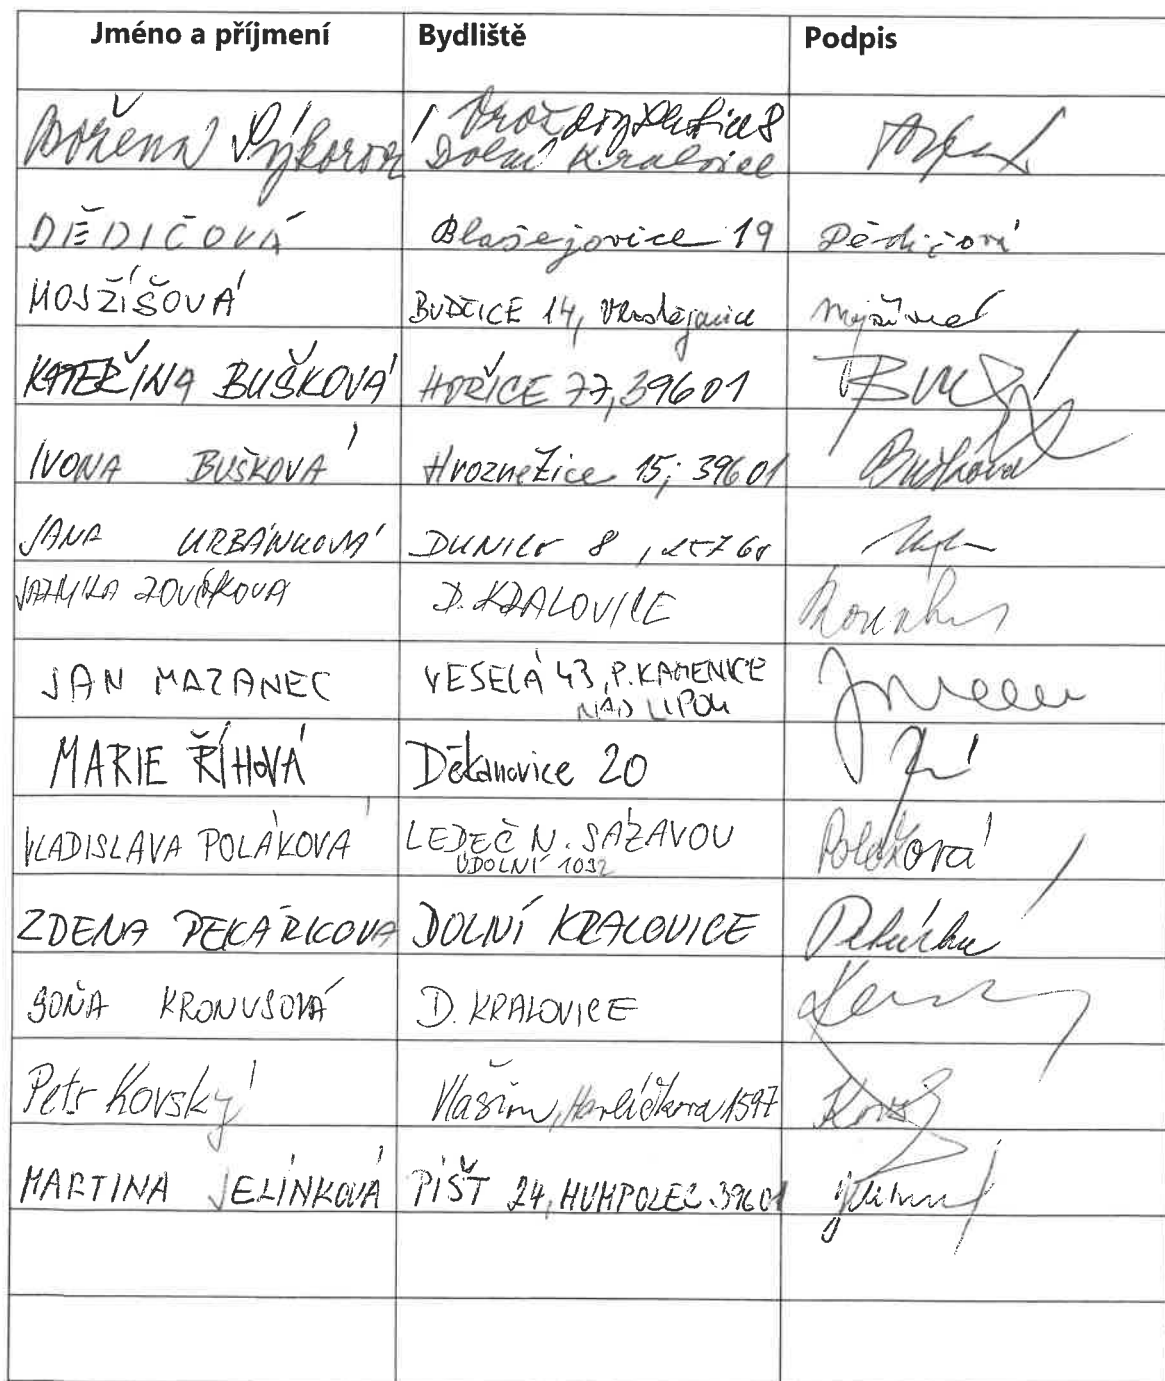 Jméno a příjmení Bydliště Podpis
Božena Sýkorová
Dolní Kralovice
DĚDIČOVÁ Blažejovice 19 Dědičová
MOJŽÍŠOVÁ BUDČICE 14,
KATEŘINA BUŠKOVÁ HOŘICE 77, 39601
IVONA BUŠKOVÁ Hroznětice 15; 39601 Bušková
JANA URBÁNKOVÁ 8, 257 68
D. KRALOVICE
JAN MAZANEC VESELÁ 43, P. KAMENICE
NAD LIPOU
MARIE ŘÍHOVÁ Děkanovice 20
VLADISLAVA POLÁKOVÁ LEDEČ N. SÁZAVOU Poláková
ÚDOLNÍ 1032
ZDENA PEKÁRKOVÁ DOLNÍ KRALOVICE
SOŇA KRONUSOVÁ D. KRALOVICE
Petr Kovský Vlašim, Havlíčkova 1597
MARTINA JELÍNKOVÁ PÍŠŤ 24, HUMPOLEC 39601